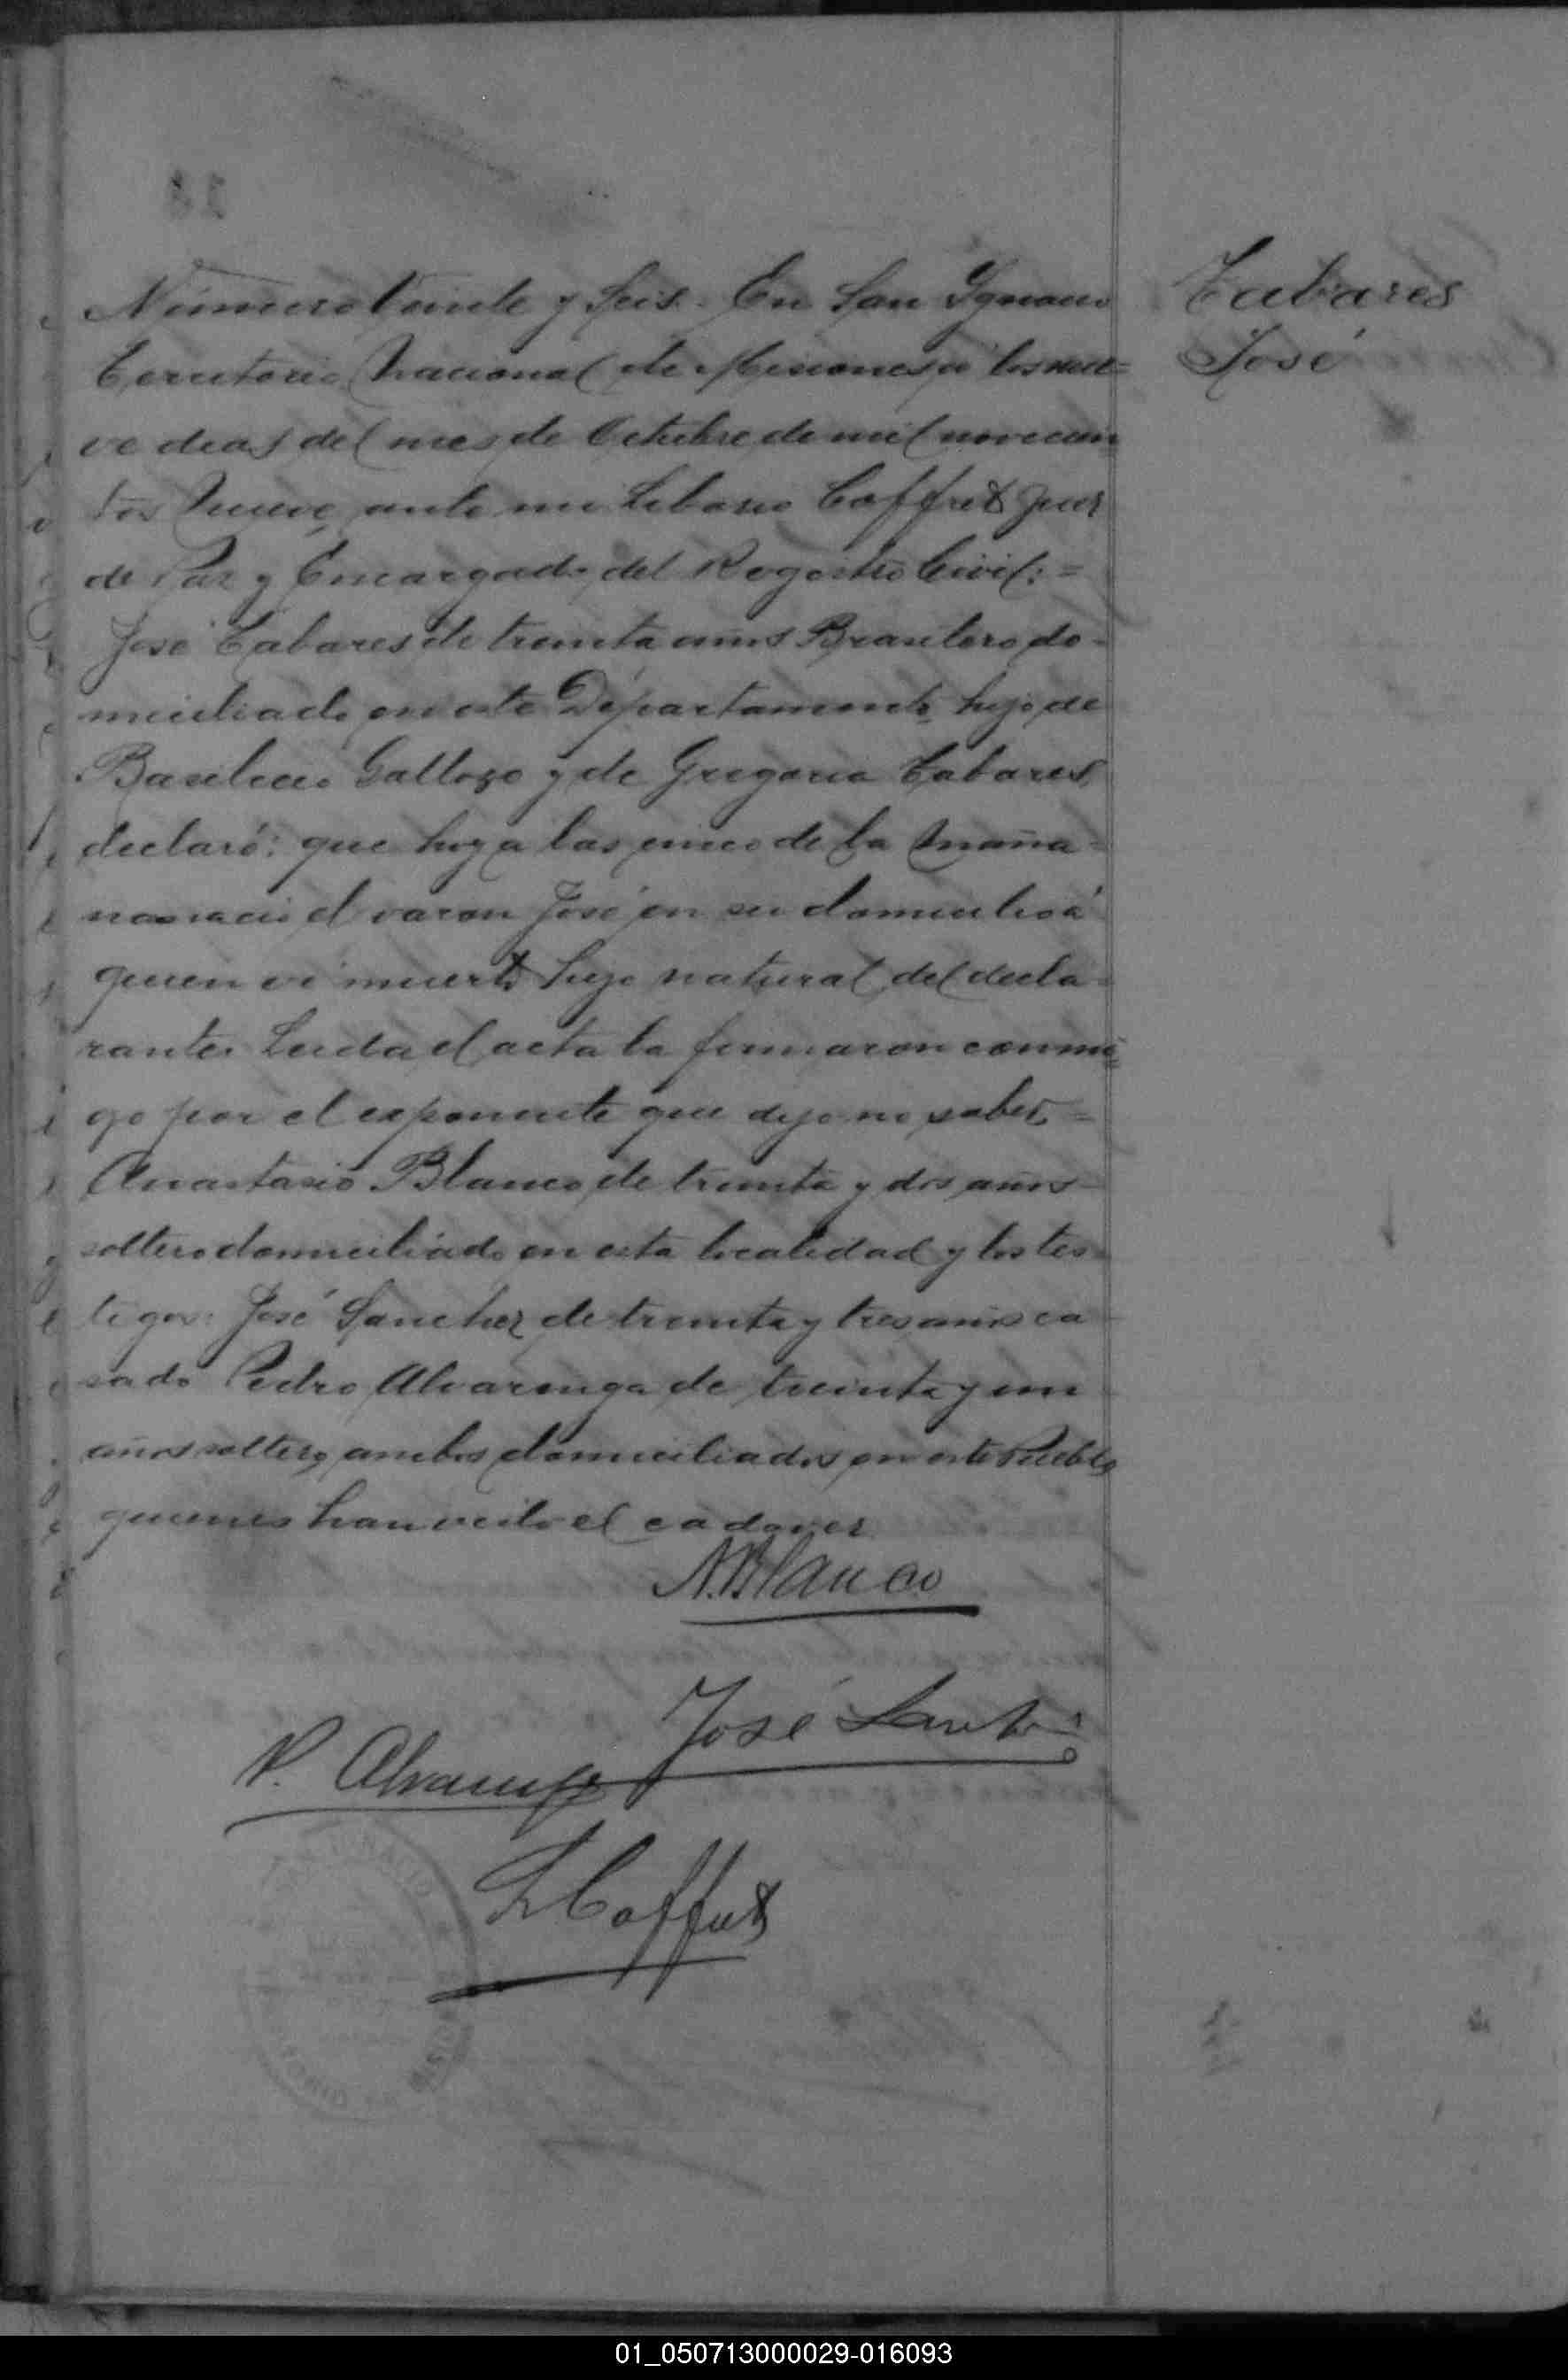 Número Veinte y Seis. En San Ygnacio
Tabares
Territorio Nacional de Misiones, a los nue=
José
ve dias del mes de Octubre de mil novecien
tos Nueve, ante mi Liborio Coffret Juez
de Paz y Encargado del Registro Civil: =
José Tabares de treinta años Brasilero do-
miciliado en este Departamento hijo de
Basilicio Gattozo y de Gregoria Tabares,
declaró: que hoy a las cinco de la maña-
na nació el varon José en su domicilio á
quien vi muerto hijo natural del decla-
rante. Leida el acta la firmaron conmi=
go por el exponente que dijo no saber, =
Anastasio Blanco de treinta y dos años
soltero domiciliado en esta localidad y los tes
tigos: José Sanchez de treinta y tres años ca
sado Pedro Alvarenga de treinta y un
años soltero, ambos domiciliados en este Pueblo,
quienes han visto el cadaver
A. Blanco
José
P. Alvarenga
L Coffret
01_050713000029-016093